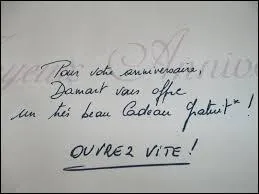 Joyeux Anniv
Pour votre anniversaire,
Damart vous offre
un très beau Cadeau gratuit* !
OUVREZ VITE !